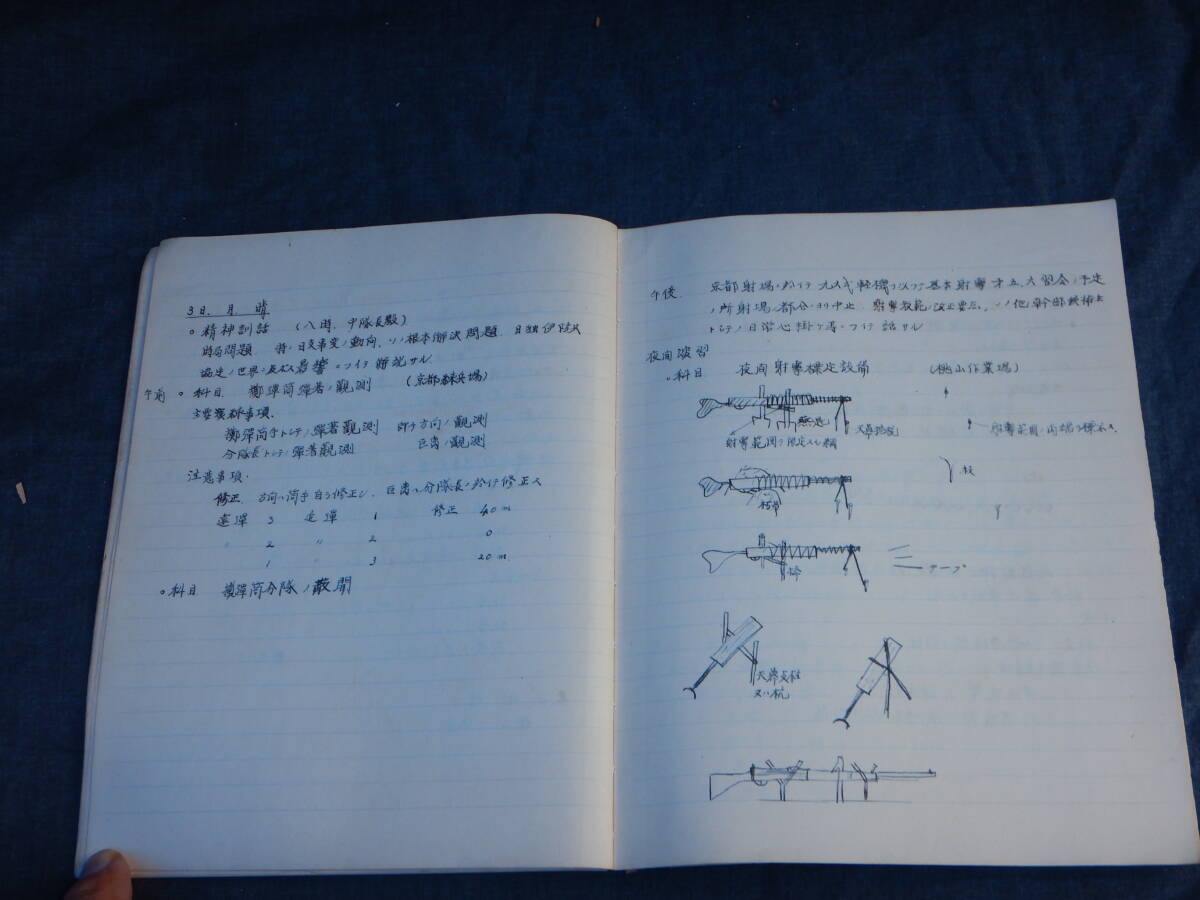 3日. 月 晴
○精神訓話 (八時、中隊長殿)
時局問題 特ニ日支事変ノ動向、ソノ根本解決問題、日独伊
協定ノ世界ニ及ボス影響ニツイテ解説サル
午前 ○科目 擲弾筒弾着ノ観測 (京都練兵場)
主要事項.
擲弾筒手トシテノ弾着観測 即チ方向ノ観測
分隊長トシテノ弾着観測 距離ノ観測
注意事項.
修正 方向ハ筒手自ラ修正シ、距離ハ分隊長ニ於イテ修正ス
遠弾 3 近弾 1 修正 40m
〃 2 〃 2 0
1 3 20m
○科目 擲弾筒分隊ノ散開
午後. 京都射場ニ於イテ九六式軽機ヲ以ッテ基本射撃 習会ノ予定
ノ所射場ノ都合ニヨリ中止 射撃教範ノ改正要点、ソノ他幹部候補生
トシテノ日常心掛ケ等ニツイテ話サル
夜間演習
○科目 夜間射撃標定設備 (桃山作業場)
天幕
射撃範囲ヲ限定スル
射撃範囲ノ両端ヲ標示ス
枝
テープ
天幕支柱
又ハ杭